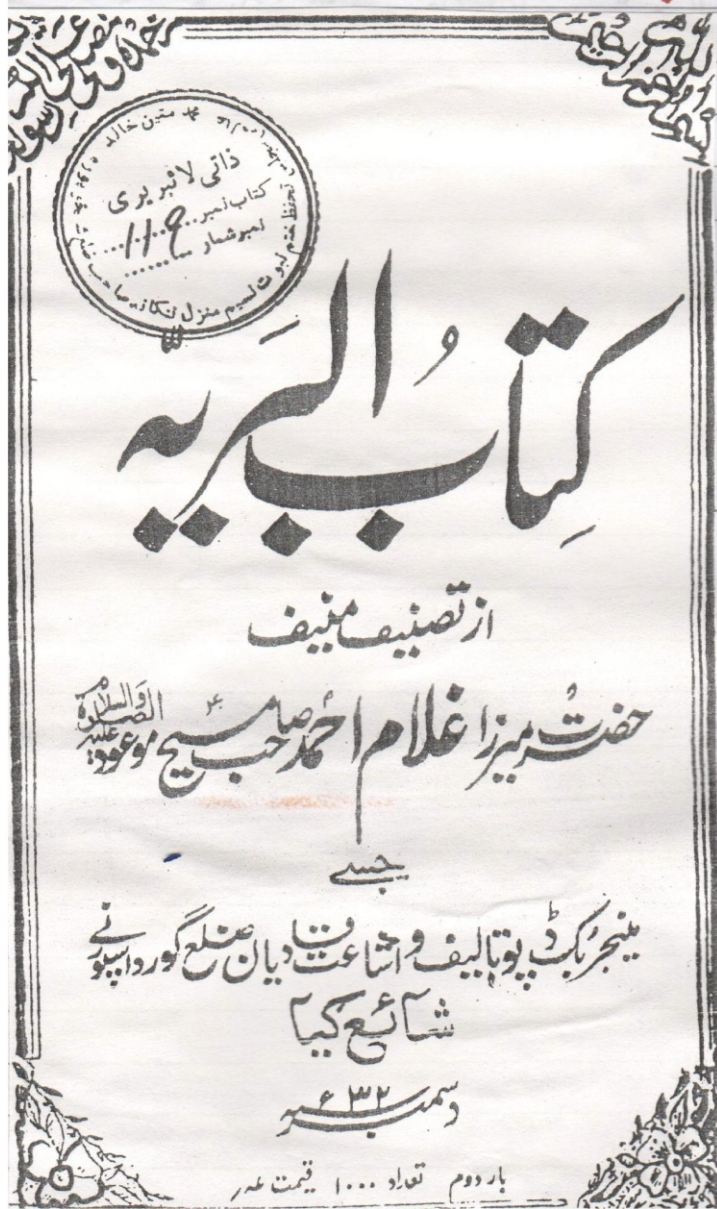 بسم اللہ الرحمٰن الرحیم
نحمدہ و نصلی علیٰ رسولہ
محمد متین خالد
ذاتی لائبریری
کتاب نمبر ......
119
نمبر شمار ......
تحفظ ختم نبوت نسیم منزل ننکانہ صاحب
کِتابُ البَریّہ
از تصنیف منیف
حضرت میرزا غلام احمد صاحب مسیح موعود علیہ الصلوٰۃ والسلام
جسے
مینجر بکڈپو تالیف و اشاعت قادیان ضلع گورداسپور نے
شائع کیا
دسمبر ۳۲ء
بار دوم تعداد ۱۰۰۰ قیمت عہ